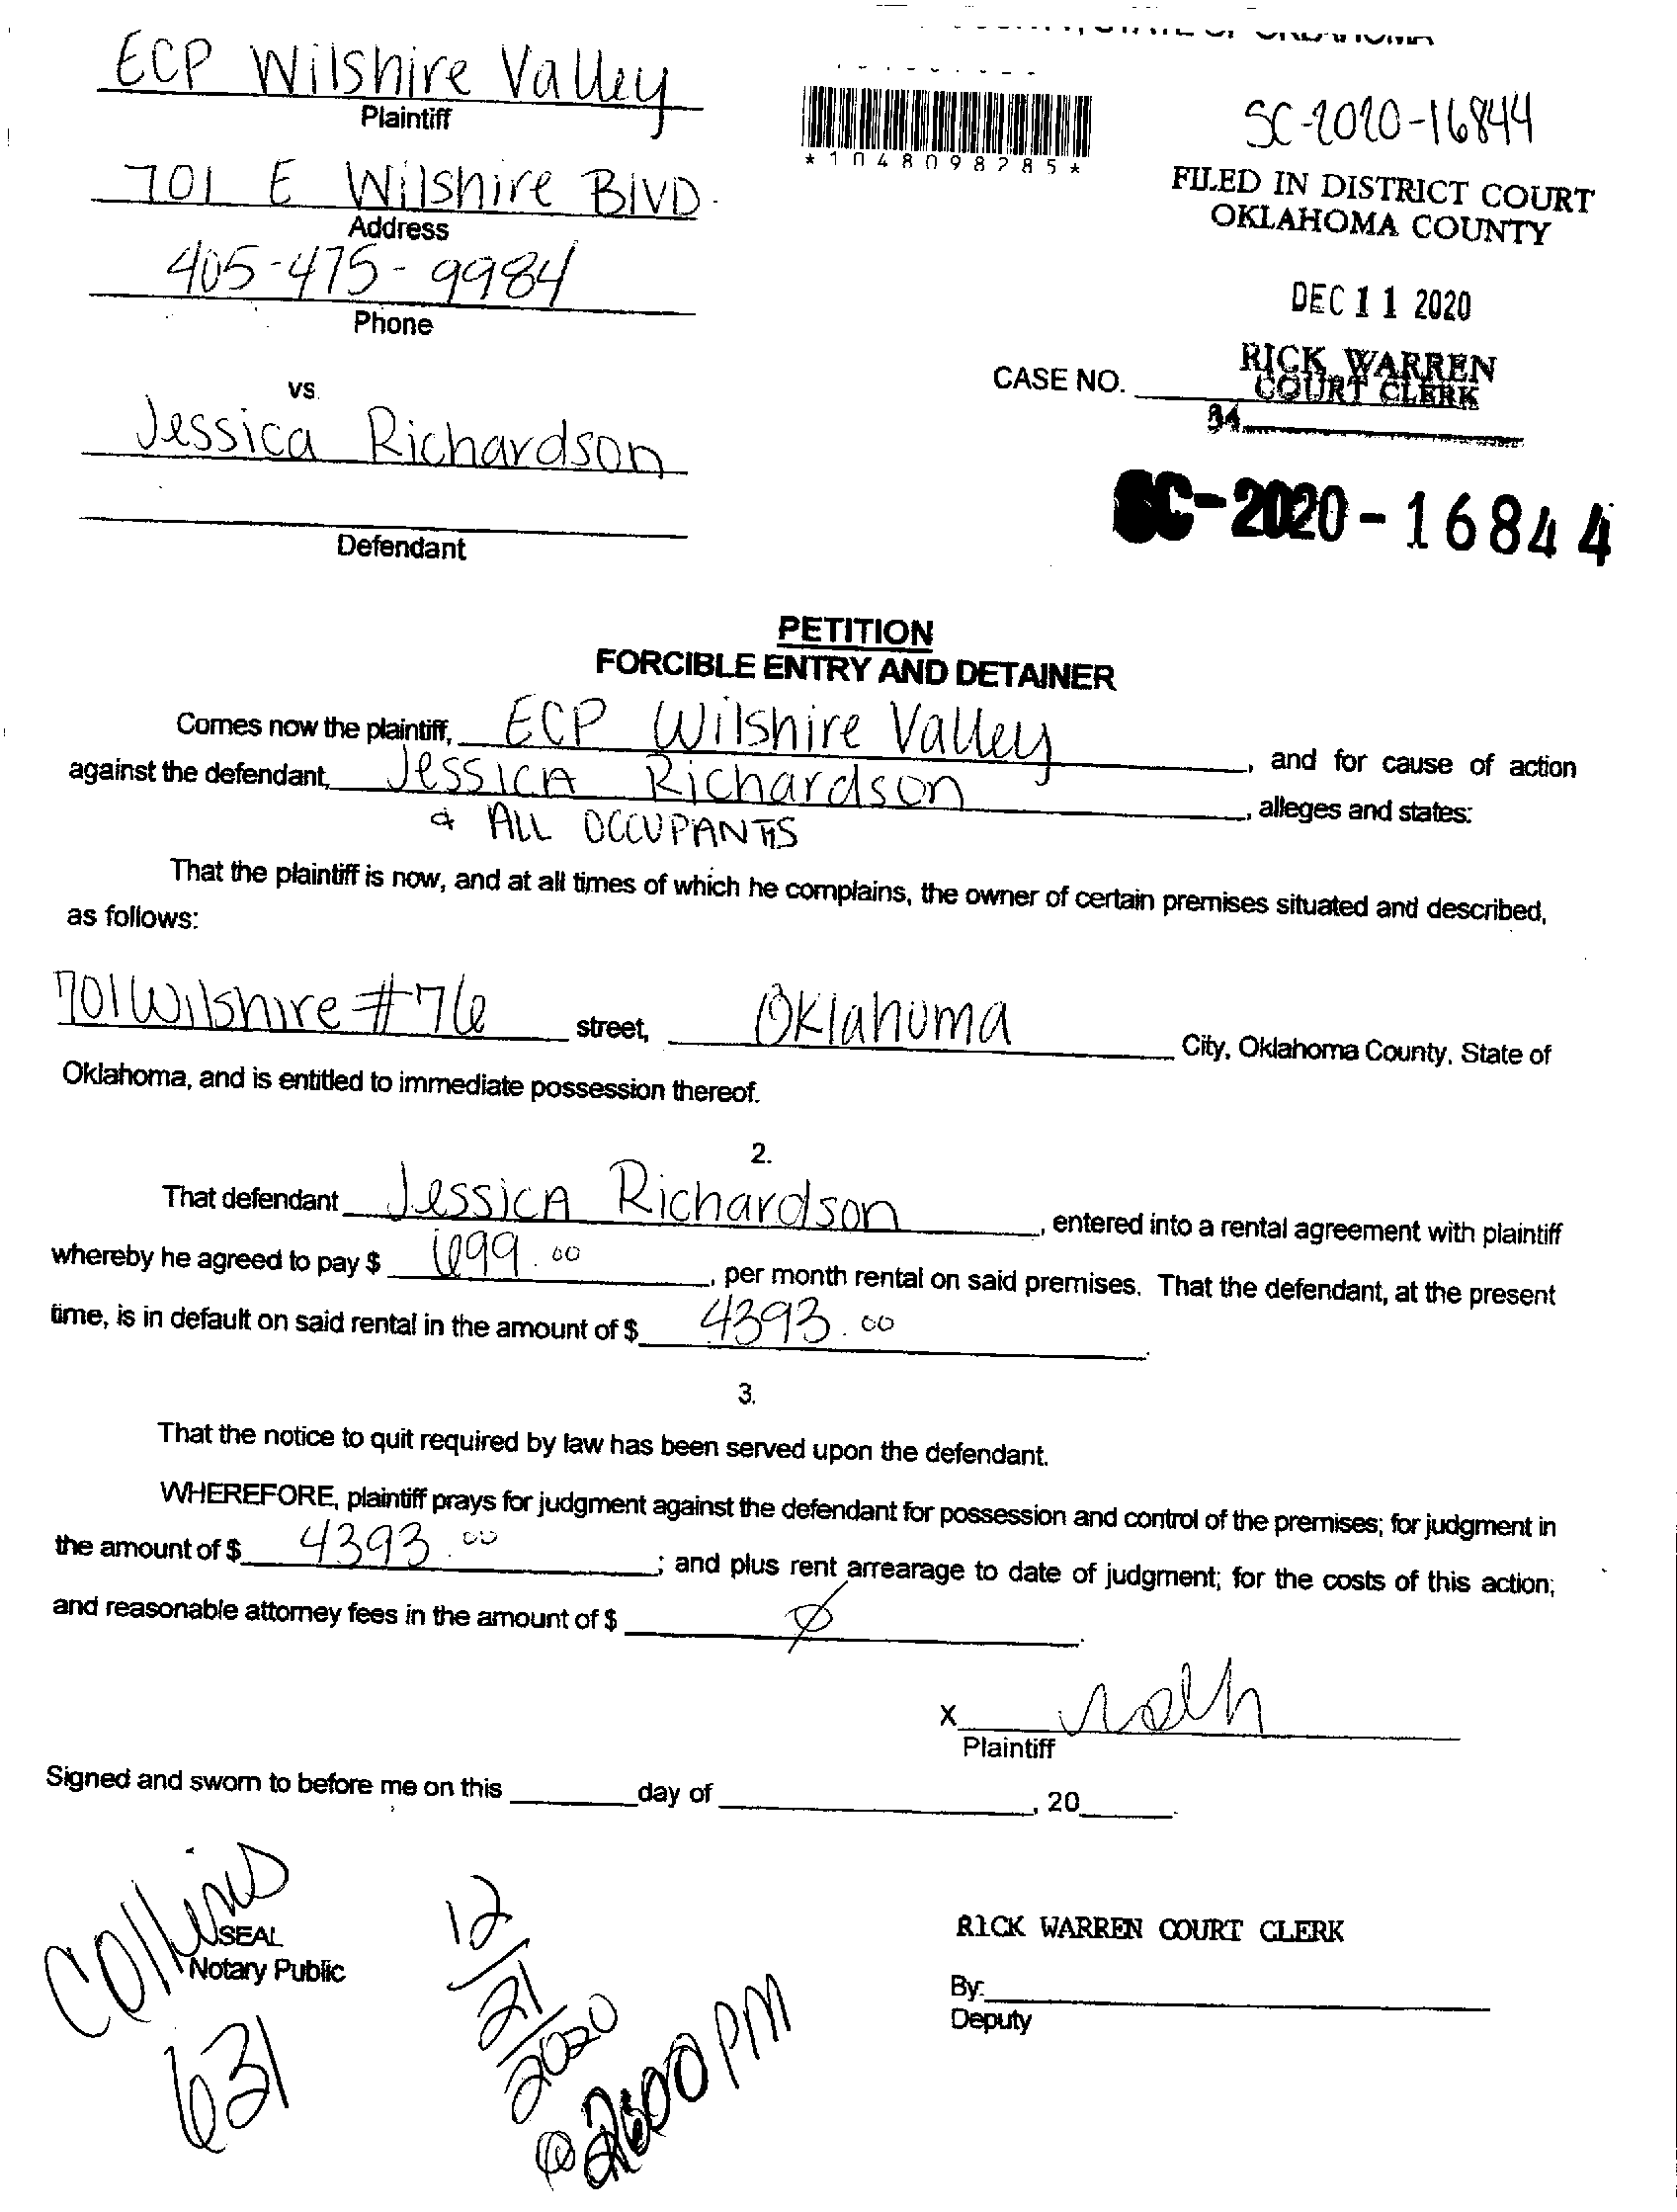 ECP Wilshire Valley
Plaintiff
701 E Wilshire BlVD.
Address
405-475-9984
Phone
vs.
Jessica Richardson
Defendant
*1048098285*
SC-2020-16844
FILED IN DISTRICT COURT
OKLAHOMA COUNTY
DEC 11 2020
RICK WARREN
COURT CLERK
CASE NO.
34
SC-2020-16844
PETITION
FORCIBLE ENTRY AND DETAINER
Comes now the plaintiff, ECP Wilshire Valley, and for cause of action
against the defendant, Jessica Richardson, alleges and states:
& ALL OCCUPANTS
That the plaintiff is now, and at all times of which he complains, the owner of certain premises situated and described,
as follows:
701 Wilshire #76 street, Oklahoma City, Oklahoma County, State of
Oklahoma, and is entitled to immediate possession thereof.
2.
That defendant Jessica Richardson, entered into a rental agreement with plaintiff
whereby he agreed to pay $ 699.00, per month rental on said premises. That the defendant, at the present
time, is in default on said rental in the amount of $ 4393.00.
3.
That the notice to quit required by law has been served upon the defendant.
WHEREFORE, plaintiff prays for judgment against the defendant for possession and control of the premises; for judgment in
the amount of $ 4393.00; and plus rent arrearage to date of judgment; for the costs of this action;
and reasonable attorney fees in the amount of $ Ø.
X
Plaintiff
Signed and sworn to before me on this day of , 20 .
Collins
SEAL
Notary Public
631
12/21/2020
@ 2:00 PM
RICK WARREN COURT CLERK
By:
Deputy